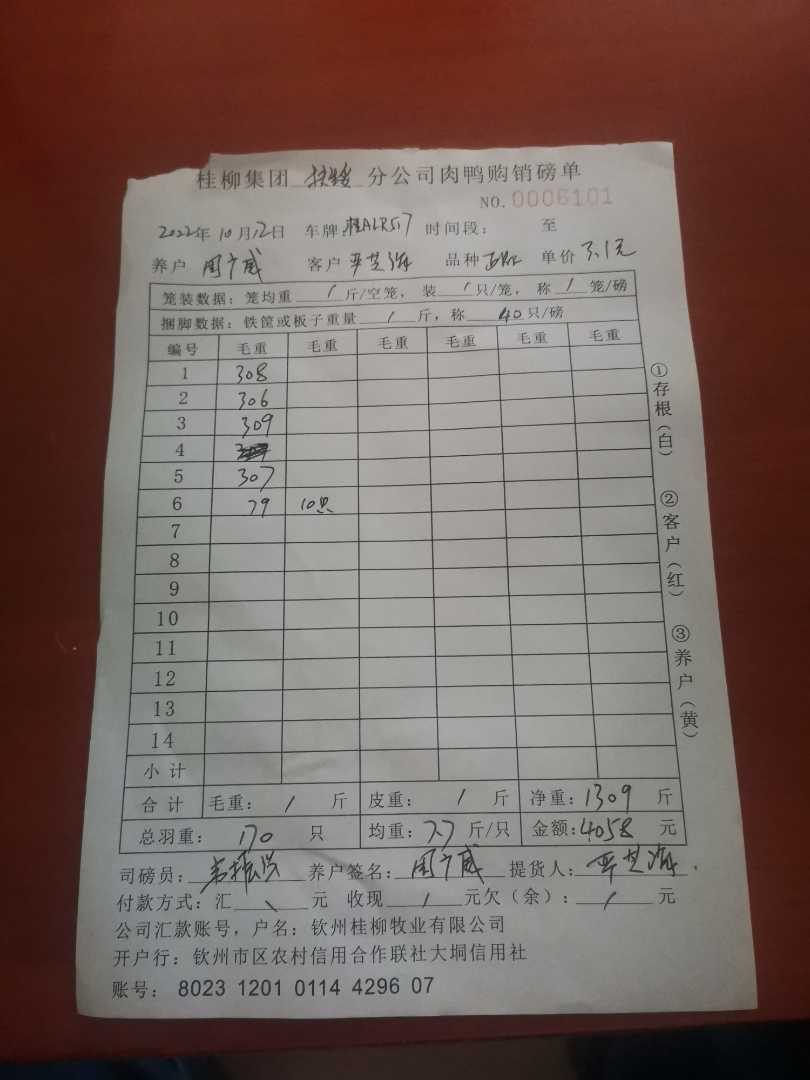 桂柳集团 扶绥 分公司肉鸭购销磅单
NO. 0006101
2022年10月12日 车牌:桂ALR517 时间段: 至
养户 周广威 客户 品种 单价 3.1元
笼装数据: 笼均重 / 斤/空笼, 装 / 只/笼, 称 / 笼/磅
捆脚数据: 铁筐或板子重量 / 斤, 称 40 只/磅
编号 毛重 毛重 毛重 毛重 毛重 毛重
1 308
2 306
3 309
4
5 307
6 79 10只
7
8
9
10
11
12
13
14
小计
合计 毛重: / 斤 皮重: / 斤 净重: 1309 斤
总羽重: 170 只 均重: 7.7 斤/只 金额: 4058 元
司磅员: 养户签名: 周广威 提货人:
付款方式: 汇 、 元 收现 / 元欠(余): / 元
公司汇款账号, 户名: 钦州桂柳牧业有限公司
开户行: 钦州市区农村信用合作联社大垌信用社
账号: 8023 1201 0114 4296 07
①存根(白)
②客户(红)
③养户(黄)